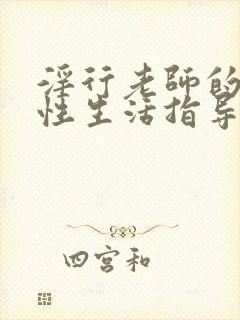 淫行老師的
性生活指导
四宫和